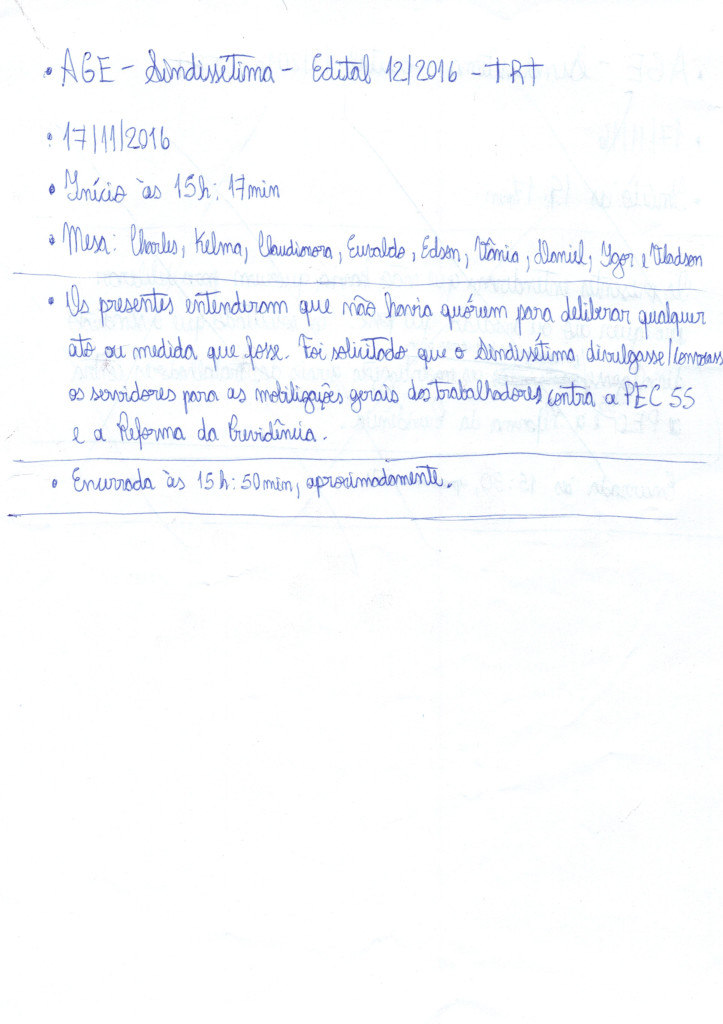 • AGE - Sindissétima - Edital 12/2016 - TRT
• 17/11/2016
• Início às 15h:17min
• Mesa: Charles, Kelma, Claudionora, Euvaldo, Edson, Vânia, Daniel, Ygor e Vladson
• Os presentes entenderam que não havia quórum para deliberar qualquer
ato ou medida que fosse. Foi solicitado que o Sindissétima divulgasse/
os servidores para as mobilizações gerais dos trabalhadores contra a PEC 55
e a Reforma da Previdência.
• Encerrada às 15h:50min, aproximadamente.